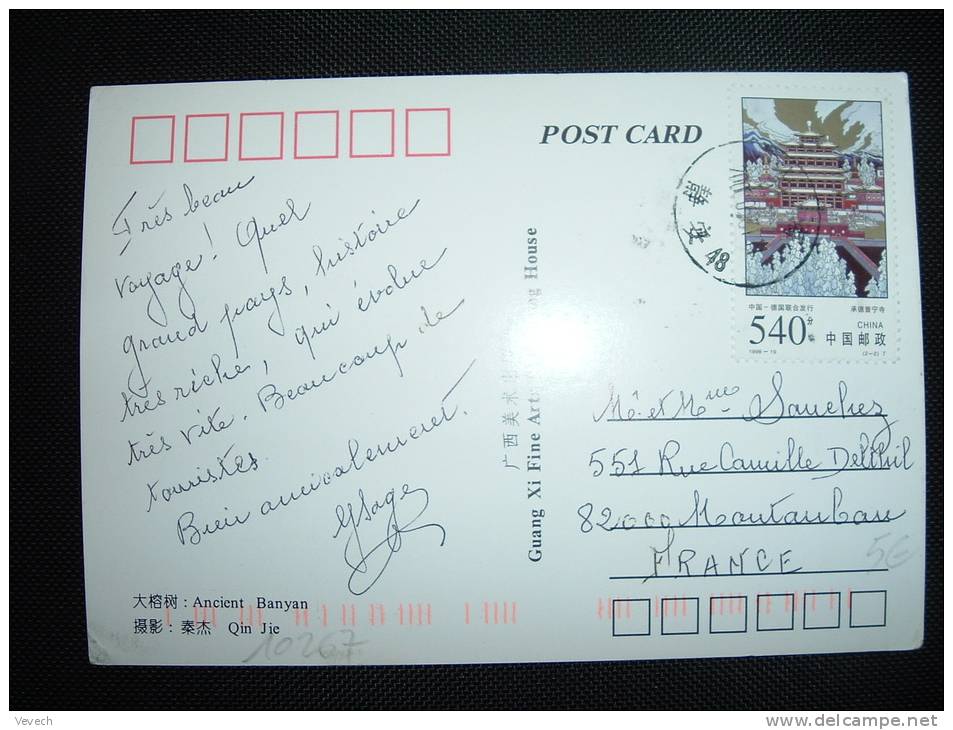 POST CARD
Très beau
voyage! Quel
grand pays, histoire
très riche, qui évolue
très vite. Beaucoup de
touristes.
Bien amicalement.
大榕树：Ancient Banyan
摄影：秦杰 Qin Jie
10267
广西美术出
Guang Xi Fine Arts ng House
48
中国－德国联合发行 承德普宁寺
540分 CHINA
中国邮政
1998-19 (2-2) T
Mr et Mme Sanchez
551 Rue Camille Delthil
82000 Montauban
FRANCE
5€
Vevech
www.delcampe.net